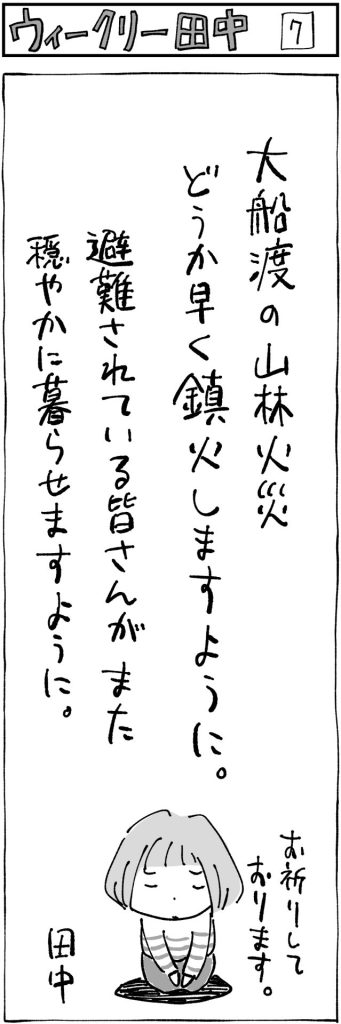 ウィークリー田中 7
大船渡の山林火災
どうか早く鎮火しますように。
避難されている皆さんがまた
穏やかに暮らせますように。
お祈りして
おります。
田中